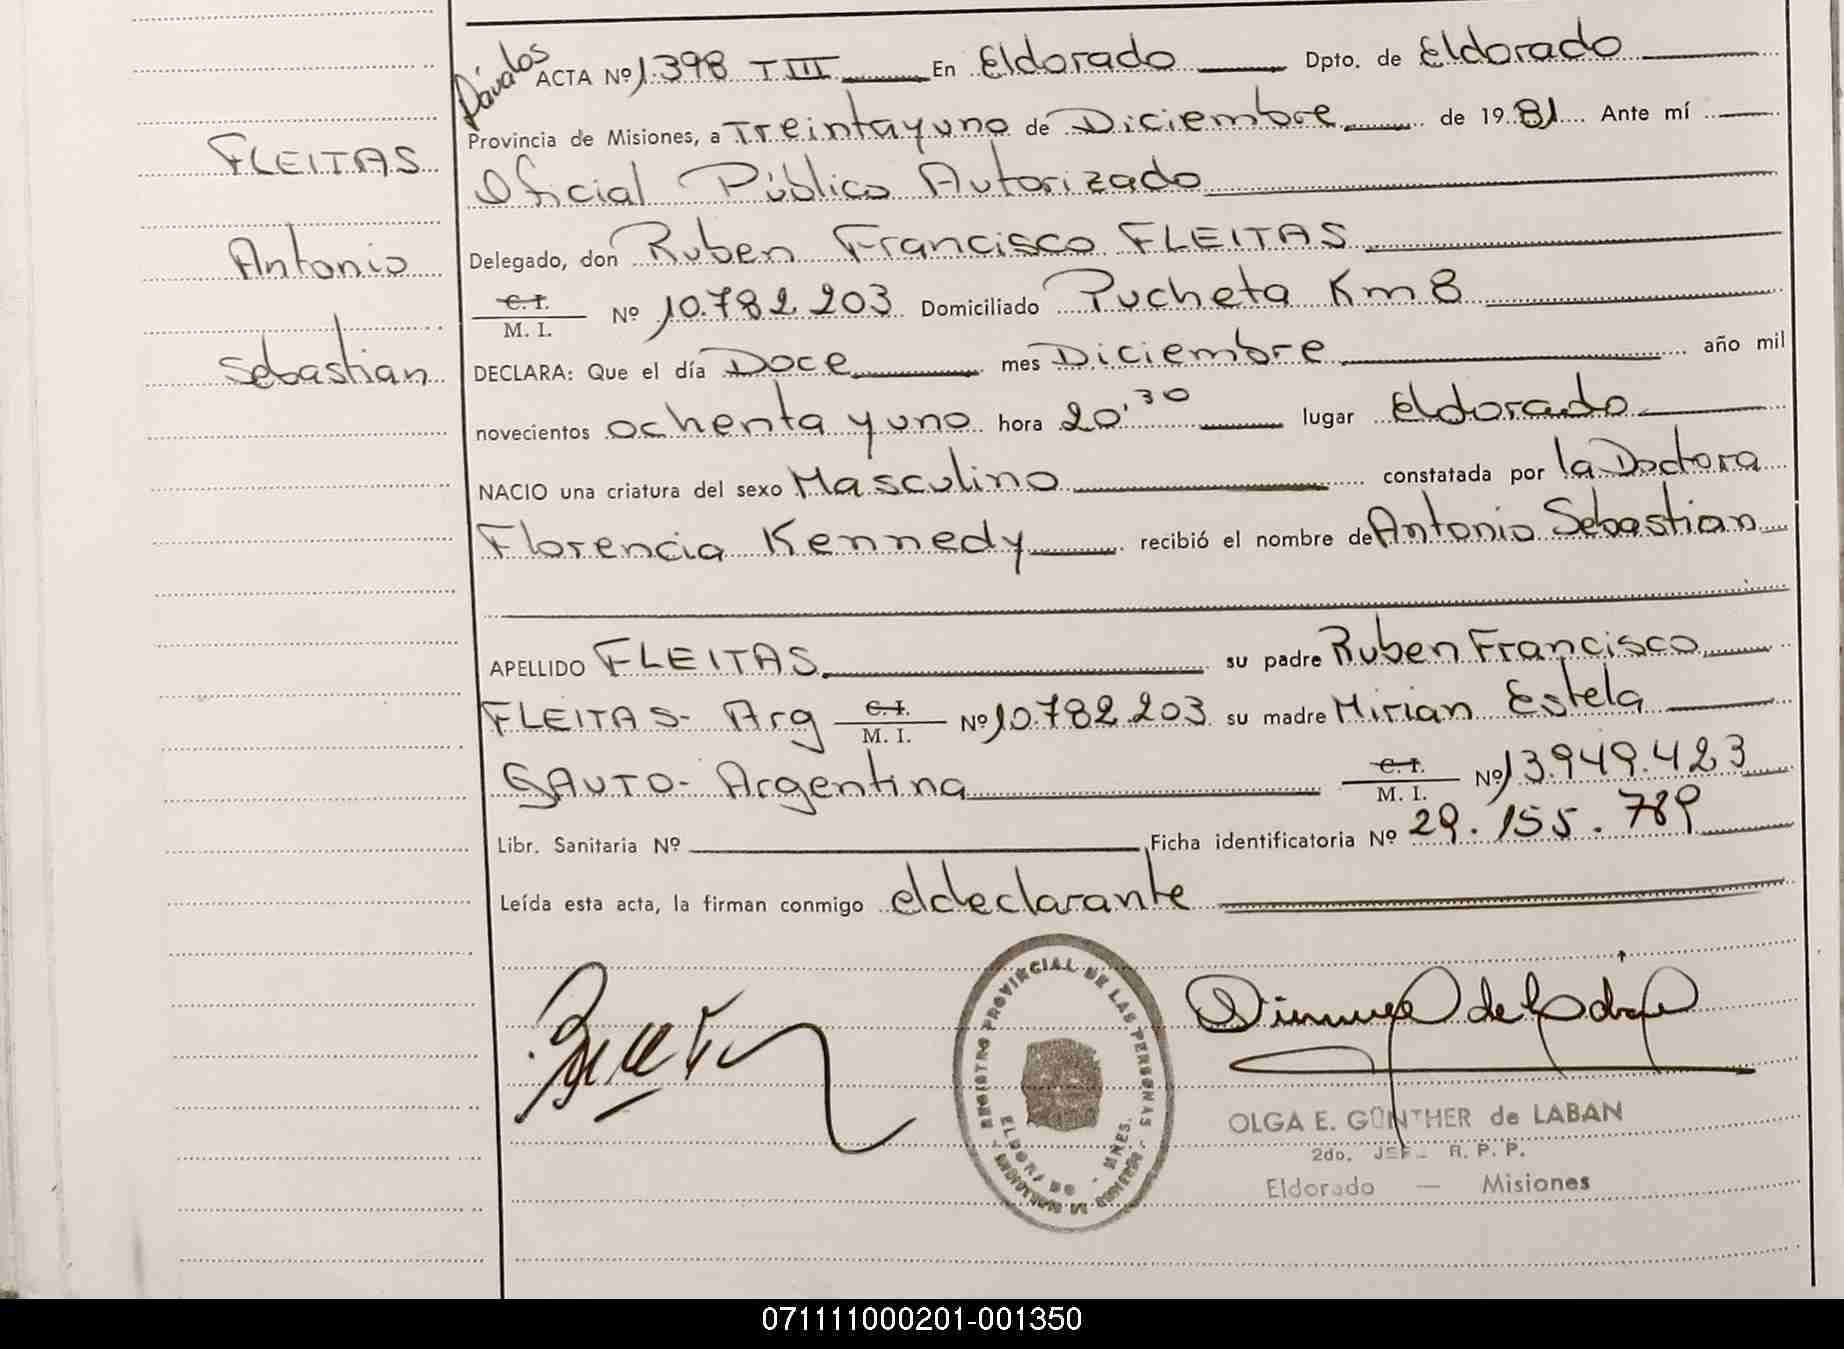 Dávalos
ACTA Nº 1.398 T III En Eldorado Dpto. de Eldorado
Provincia de Misiones, a Treinta y uno de Diciembre de 19 81 Ante mí
Oficial Público Autorizado
Delegado, don Ruben Francisco FLEITAS
C. I. M. I. Nº 10.782.203 Domiciliado Pucheta Km 8
DECLARA: Que el día Doce mes Diciembre año mil
novecientos ochenta y uno hora 20,30 lugar Eldorado
NACIO una criatura del sexo Masculino constatada por la Doctora
Florencia Kennedy recibió el nombre de Antonio Sebastian
APELLIDO FLEITAS su padre Ruben Francisco
FLEITAS- Arg C. I. M. I. Nº 10.782.203 su madre Mirian Estela
GAUTO- Argentina C. I. M. I. Nº 13.949.423
Libr. Sanitaria Nº Ficha identificatoria Nº 29.155.789
Leída esta acta, la firman conmigo el declarante
FLEITAS
Antonio
Sebastian
REGISTRO PROVINCIAL DE LAS PERSONAS
ELDORADO - MNES.
OLGA E. GÜNTHER de LABAN
2do. JEF R. P. P.
Eldorado — Misiones
071111000201-001350